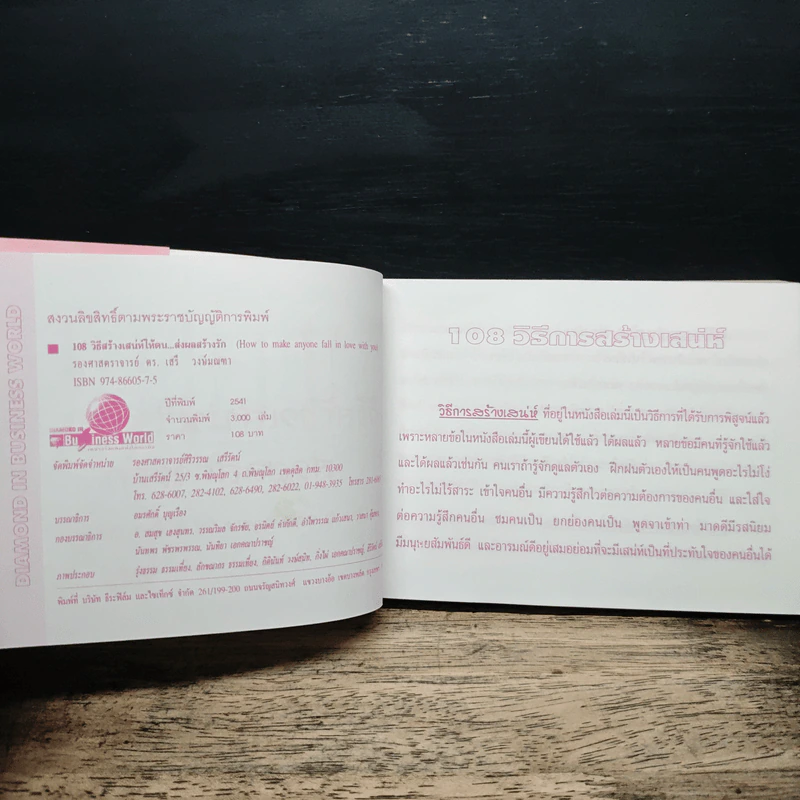 DIAMOND IN BUSINESS WORLD
สงวนลิขสิทธิ์ตามพระราชบัญญัติการพิมพ์
108 วิธีสร้างเสน่ห์ให้ตน...ส่งผลสร้างรัก (How to make anyone fall in love with you)
รองศาสตราจารย์ ดร. เสรี วงษ์มณฑา
ISBN 974-86605-7-5
ปีที่พิมพ์ 2541
จำนวนพิมพ์ 3,000 เล่ม
ราคา 108 บาท
DIAMOND IN
Business World
จัดพิมพ์จัดจำหน่าย รองศาสตราจารย์ศิริวรรณ เสรีรัตน์
บ้านเสรีรัตน์ 25/3 ซ.พิษณุโลก 4 ถ.พิษณุโลก เขตดุสิต กทม. 10300
โทร. 628-6007, 282-4102, 628-6490, 282-6022, 01-948-3935 โทรสาร
บรรณาธิการ อมรศักดิ์ บุญเรือง
กองบรรณาธิการ อ. สมสุข
นันทพร พัชรพรพรรณ, นันทิยา เอกคณาปราชญ์
ภาพประกอบ รุ่งธรรม ธรรมเที่ยง, ลักขณากร ธรรมเที่ยง,
พิมพ์ที่ บริษัท ธีระฟิล์ม และไซเท็กซ์ จำกัด 261/199-200 ถนนจรัญสนิทวงศ์ แขวงบางอ้อ เขตบางพลัด
108 วิธีการสร้างเสน่ห์
วิธีการสร้างเสน่ห์ ที่อยู่ในหนังสือเล่มนี้เป็นวิธีการที่ได้รับการพิสูจน์แล้ว
เพราะหลายข้อในหนังสือเล่มนี้ผู้เขียนได้ใช้แล้ว ได้ผลแล้ว หลายข้อมีคนที่รู้จักใช้แล้ว
และได้ผลแล้วเช่นกัน คนเราถ้ารู้จักดูแลตัวเอง ฝึกฝนตัวเองให้เป็นคนพูดอะไรไม่โง่
ทำอะไรไม่ไร้สาระ เข้าใจคนอื่น มีความรู้สึกไวต่อความต้องการของคนอื่น และใส่ใจ
ต่อความรู้สึกคนอื่น ชมคนเป็น ยกย่องคนเป็น พูดจาเข้าท่า มาดดีมีรสนิยม
มีมนุษยสัมพันธ์ดี และอารมณ์ดีอยู่เสมอย่อมที่จะมีเสน่ห์เป็นที่ประทับใจของคนอื่นได้